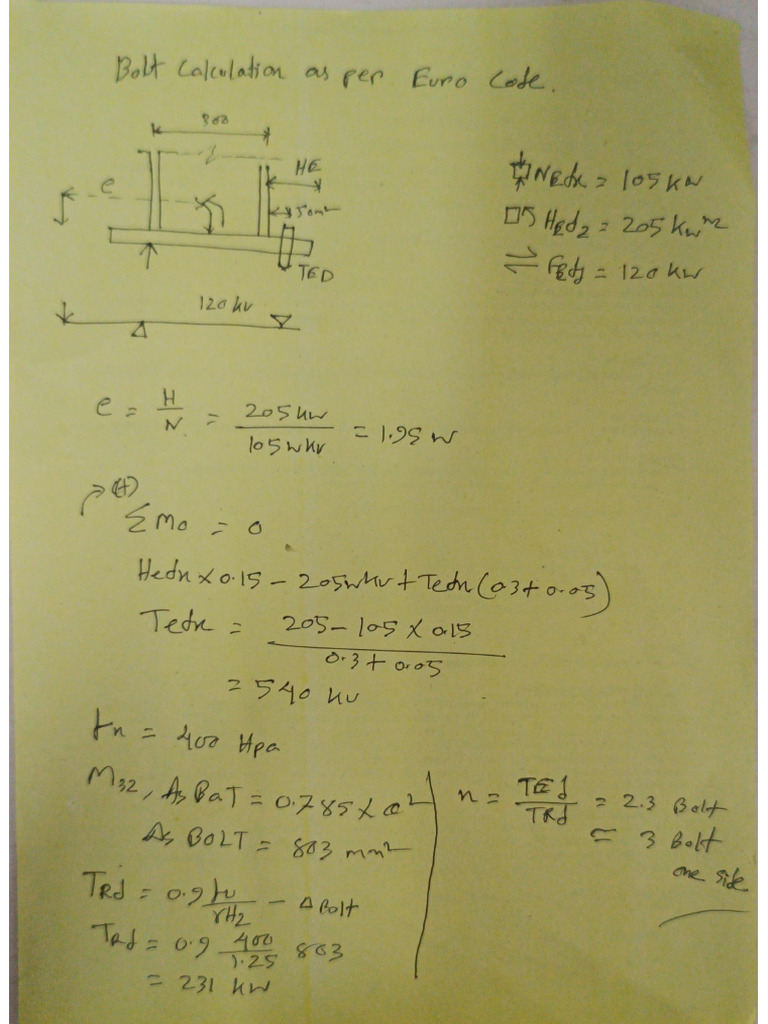 Bolt Calculation as per Euro Code.
300
HE
e
50m²
TED
120 kv
NEdx = 105 KN
HEd2 = 205 kwm²
FEdy = 120 kw
e = H/N = 205 kw / 105 w kv = 1.95 w
(+)
ΣMo = 0
Hedx x 0.15 - 205wkv + Tedx (0.3 + 0.05)
Tedx = 205 - 105 x 0.15 / 0.3 + 0.05
= 540 kv
fu = 400 Hpa
M32, As BaT = 0.785 x a²
As BOLT = 803 mm²
TRd = 0.9 fu / γH2 - Δ Bolt
TRd = 0.9 400 / 1.25 803
= 231 kw
n = TEd / TRd = 2.3 Bolt
≃ 3 Bolt
one side